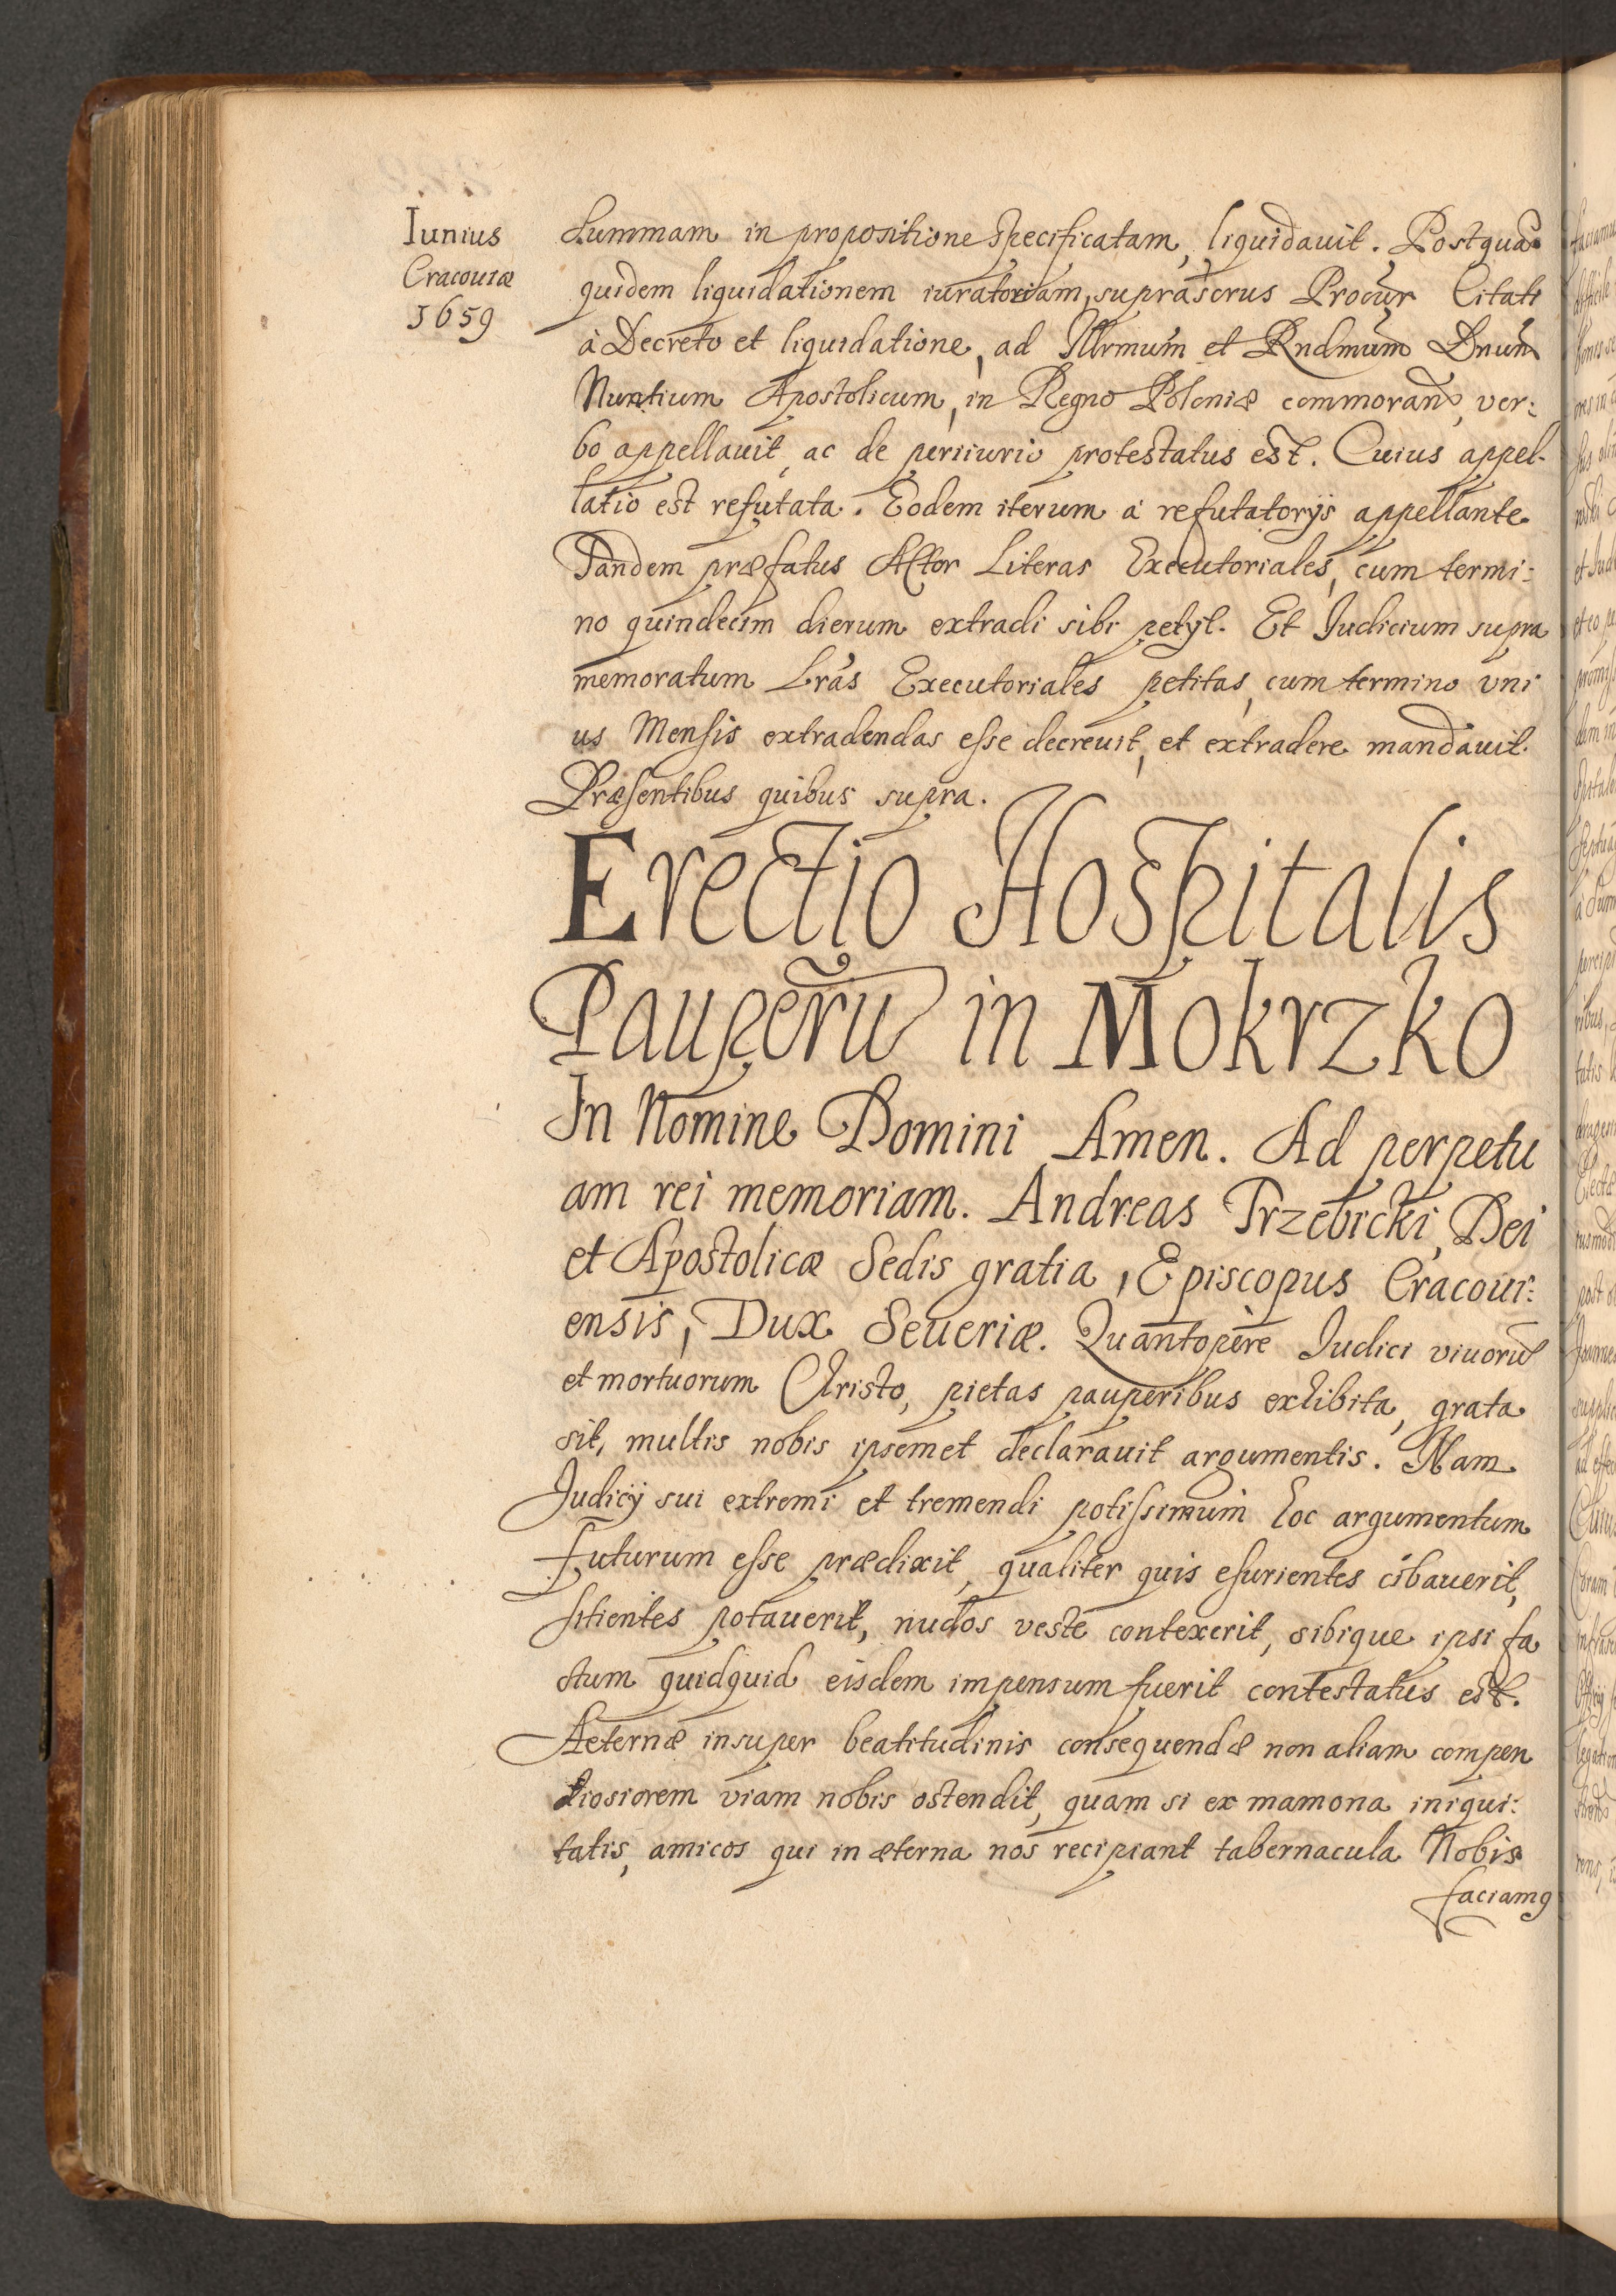 Iunius
Cracouiæ
1659
Summam in propositione specificatam, liquidauit. Postquã
quidem liquidationem iuratoriam, suprascrus Procur Citati
à Decreto et liquidatione, ad Illrmum et Rndmum Dnum
Nuntium Apostolicum, in Regno Poloniæ commoran, ver:
bo appellauit, ac de periurio protestatus est. Cuius appel-
latio est refutata. Eodem iterum à refutatorijs appellante.
Tandem præfatus Actor Literas Executoriales, cum termi:
no quindecim dierum extradi sibi petijt. Et Iudicium supra
memoratum Lras Executoriales petitas, cum termino vni
us Mensis extradendas esse decreuit, et extradere mandauit.
Præsentibus quibus supra.
Erectio Hospitalis
Pauperũ in Mokrzko
In Nomine Domini Amen. Ad perpetu
am rei memoriam. Andreas Trzebicki, Dei
et Apostolicæ Sedis gratia, Episcopus Cracoui:
ensis, Dux Seueriæ. Quantopere Iudici viuorũ
et mortuorum Christo, pietas pauperibus exhibita, grata
sit, multis nobis ipsemet declarauit argumentis. Nam
Judicij sui extremi et tremendi potissimum hoc argumentum
Futurum esse prædixit, qualiter quis esurientes cibauerit,
sitientes potauerit, nudos veste contexerit, sibique ipsi fa
ctum quidquid eisdem impensum fuerit contestatus est.
Aeternæ insuper beatitudinis consequendæ non aliam compen
diosiorem viam nobis ostendit, quam si ex mamona iniqui:
tatis, amicos qui in æterna nos recipiant tabernacula Nobis
faciamꝰ